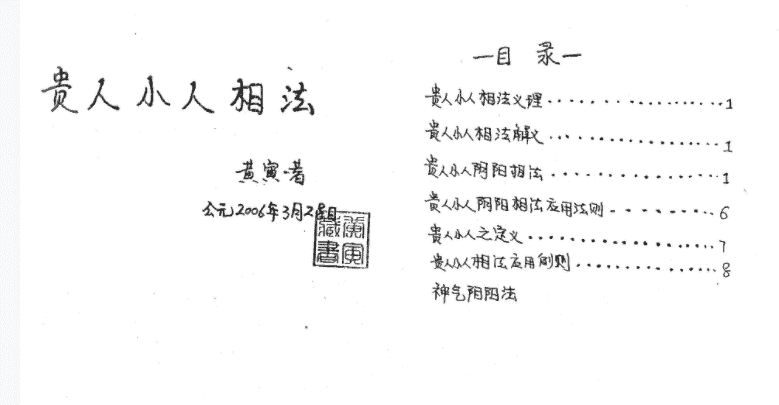 贵人小人相法
黄寅·著
公元2006年3月28日
黄寅
藏書
—目 录—
贵人小人相法义理....................1
贵人小人相法解义....................1
贵人小人阴阳相法....................1
贵人小人阴阳相法应用法则..........6
贵人小人之定义....................7
贵人小人相法应用例则...............8
神气阴阳法